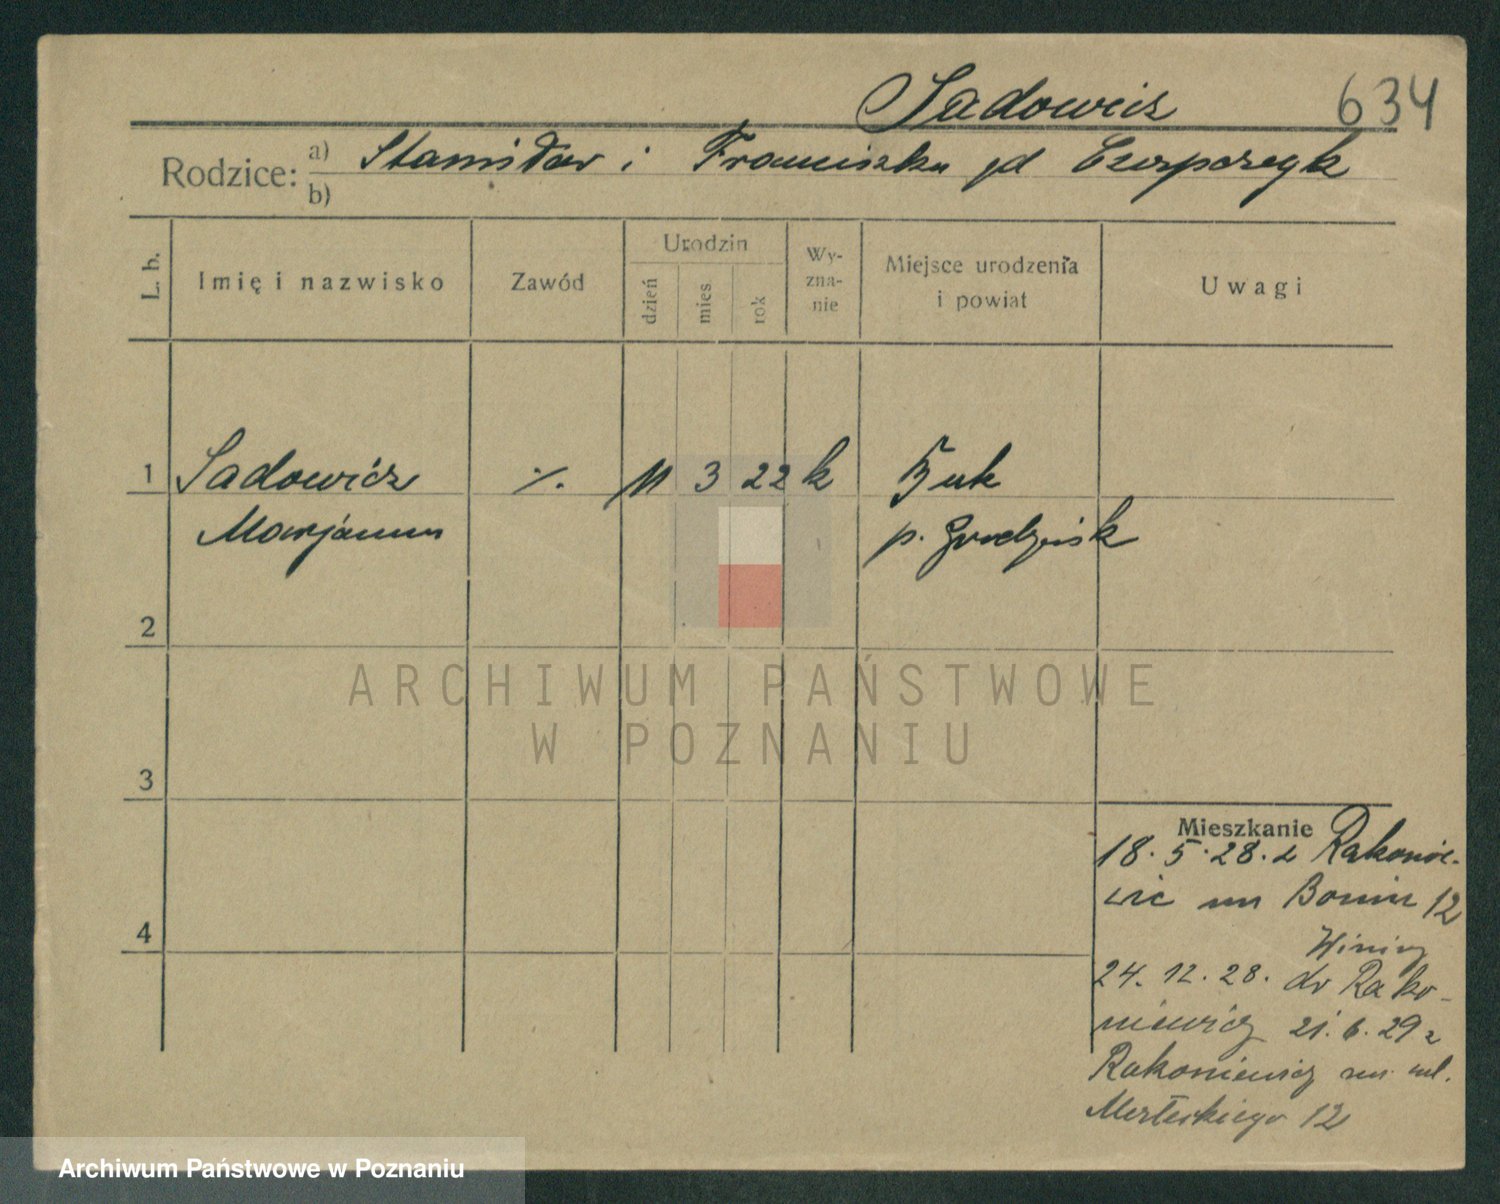 Sadowicz 634
Rodzice: a) Stanisław i Franciszka
b)
L. b.
Imię i nazwisko
Zawód
Urodzin
dzień
mies.
rok
Wy-
zna-
nie
Miejsce urodzenia
i powiat
Uwagi
1 Sadowicz ·/. 11 3 22 k Buk
Marjanna p. Grodzisk
2
ARCHIWUM PAŃSTWOWE
W POZNANIU
3
Mieszkanie
18.5.28. z Rakonie-
wic na Bonin 12
Winiary
24.12.28. do Rako-
niewicz 21.6.29 z
Rakoniewicz na ul.
12
4
Archiwum Państwowe w Poznaniu